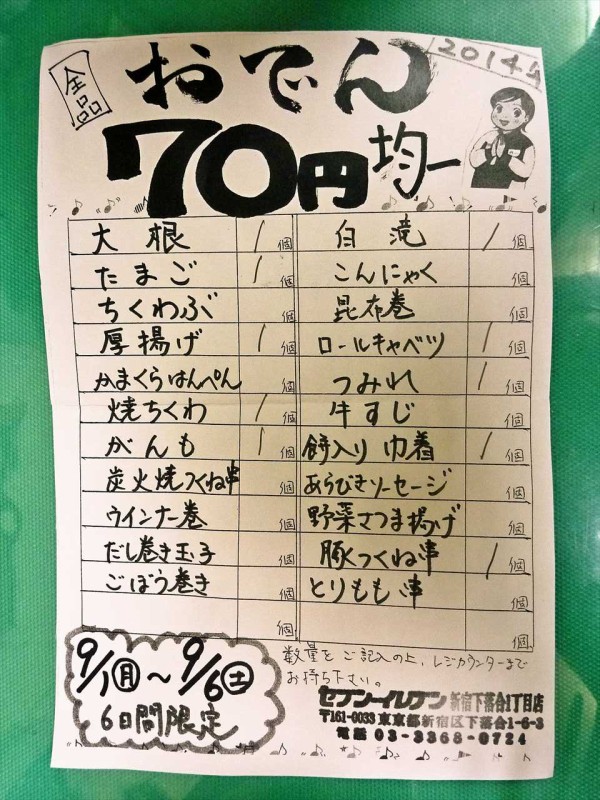 2014年
全品
おでん
70円均一
大根 1個 白滝 1個
たまご 1個 こんにゃく 個
ちくわぶ 個 昆布巻 個
厚揚げ 1個 ロールキャベツ 1個
かまくらはんぺん 個 つみれ 1個
焼ちくわ 1個 牛すじ 個
がんも 1個 餅入り巾着 1個
炭火焼つくね串 個 あらびきソーセージ 個
ウインナー巻 個 野菜さつま揚げ 個
だし巻き玉子 個 豚つくね串 1個
ごぼう巻き 個 とりもも串 個
個 個
9/1(月)～9/6(土)
6日間限定
数量をご記入の上、レジカウンターまで
お持ち下さい。
セブン-イレブン 新宿下落合1丁目店
〒161-0033 東京都新宿区下落合1-6-3
電話 03-3368-0724